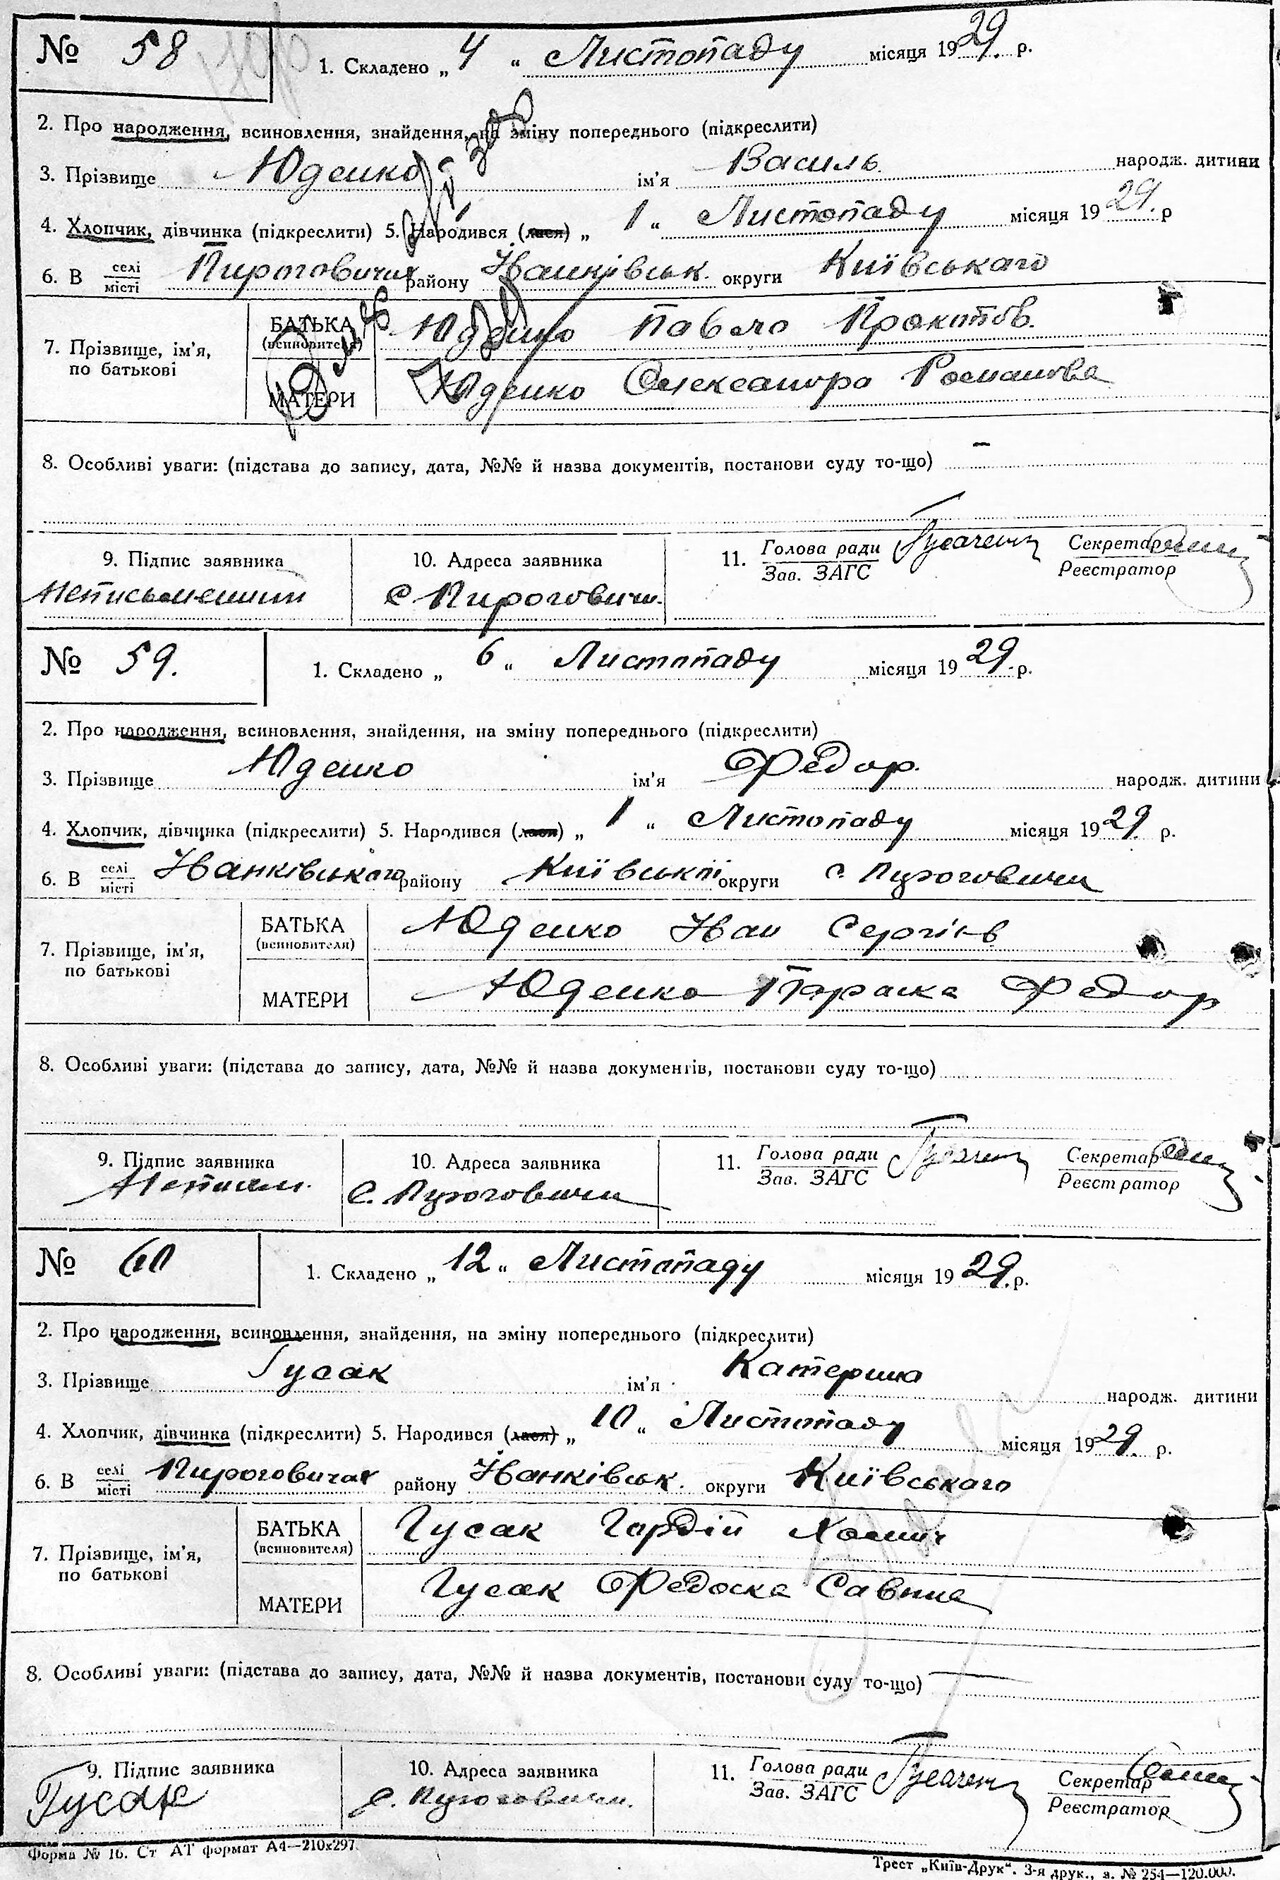 № 58
1. Складено „ 4 “ Листопаду місяця 1929. р.
2. Про народження, всиновлення, знайдення, на зміну попереднього (підкреслити)
3. Прізвище Юденко ім'я Василь народж. дитини
4. Хлопчик, дівчинка (підкреслити) 5. Народився (лася) „ 1 “ Листопаду місяця 1929. р
6. В селі місті Пироговичах району Іванківськ. округи Київського
7. Прізвище, ім'я, по батькові
БАТЬКА (всиновителя) Юденко Павло Прокопов.
МАТЕРИ Юденко Олександра Романова
8. Особливі уваги: (підстава до запису, дата, №№ й назва документів, постанови суду то-що) –
9. Підпис заявника
Неписьменний
10. Адреса заявника
с Пироговичи.
11. Голова ради Зав. ЗАГС
Секретар Реєстратор
№ 59.
1. Складено „ 6 “ Листопаду місяця 1929. р.
2. Про народження, всиновлення, знайдення, на зміну попереднього (підкреслити)
3. Прізвище Юденко ім'я Федор. народж. дитини
4. Хлопчик, дівчинка (підкреслити) 5. Народився (лася) „ 1 “ Листопаду місяця 1929. р.
6. В селі місті Іванківського району Київської округи с. Пироговичи
7. Прізвище, ім'я, по батькові
БАТЬКА (всиновителя) Юденко Іван Сергіїв
МАТЕРИ Юденко Параска Федор
8. Особливі уваги: (підстава до запису, дата, №№ й назва документів, постанови суду то-що)
9. Підпис заявника
Неписьм.
10. Адреса заявника
с. Пироговичи
11. Голова ради Зав. ЗАГС
Секретар Реєстратор
№ 60
1. Складено „ 12 “ Листопаду місяця 1929. р.
2. Про народження, всиновлення, знайдення, на зміну попереднього (підкреслити)
3. Прізвище Гусак ім'я Катерина народж. дитини
4. Хлопчик, дівчинка (підкреслити) 5. Народився (лася) „ 10 “ Листопаду місяця 1929. р.
6. В селі місті Пироговичах району Іванківськ. округи Київського
7. Прізвище, ім'я, по батькові
БАТЬКА (всиновителя) Гусак Гордій Хомич
МАТЕРИ Гусак Федоска Савина
8. Особливі уваги: (підстава до запису, дата, №№ й назва документів, постанови суду то-що)
9. Підпис заявника
Гусак
10. Адреса заявника
с. Пироговичи.
11. Голова ради Зав. ЗАГС
Секретар Реєстратор
Форма № 16. Ст АТ формат А4—210x297
Трест „Київ-Друк“. 3-я друк., з. № 254—120.000.